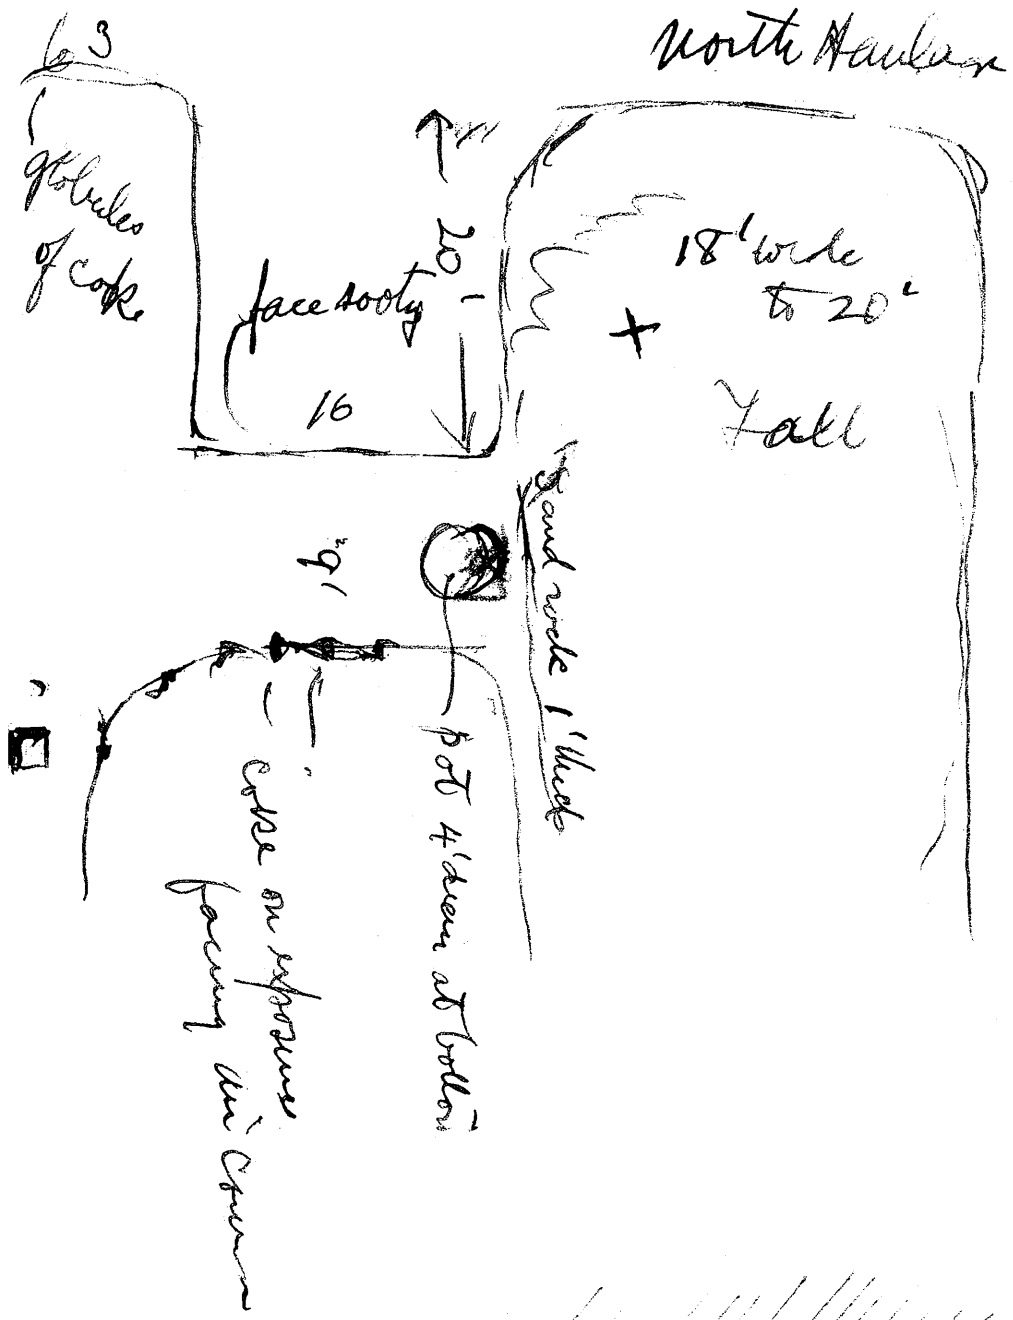 63
North Haulage
globules
of coke
20'
face sooty
16
18' wide
to 20'
Fall
Sand rock 1' thick
pot 4' diam at bottom
coke on exposures
facing air course